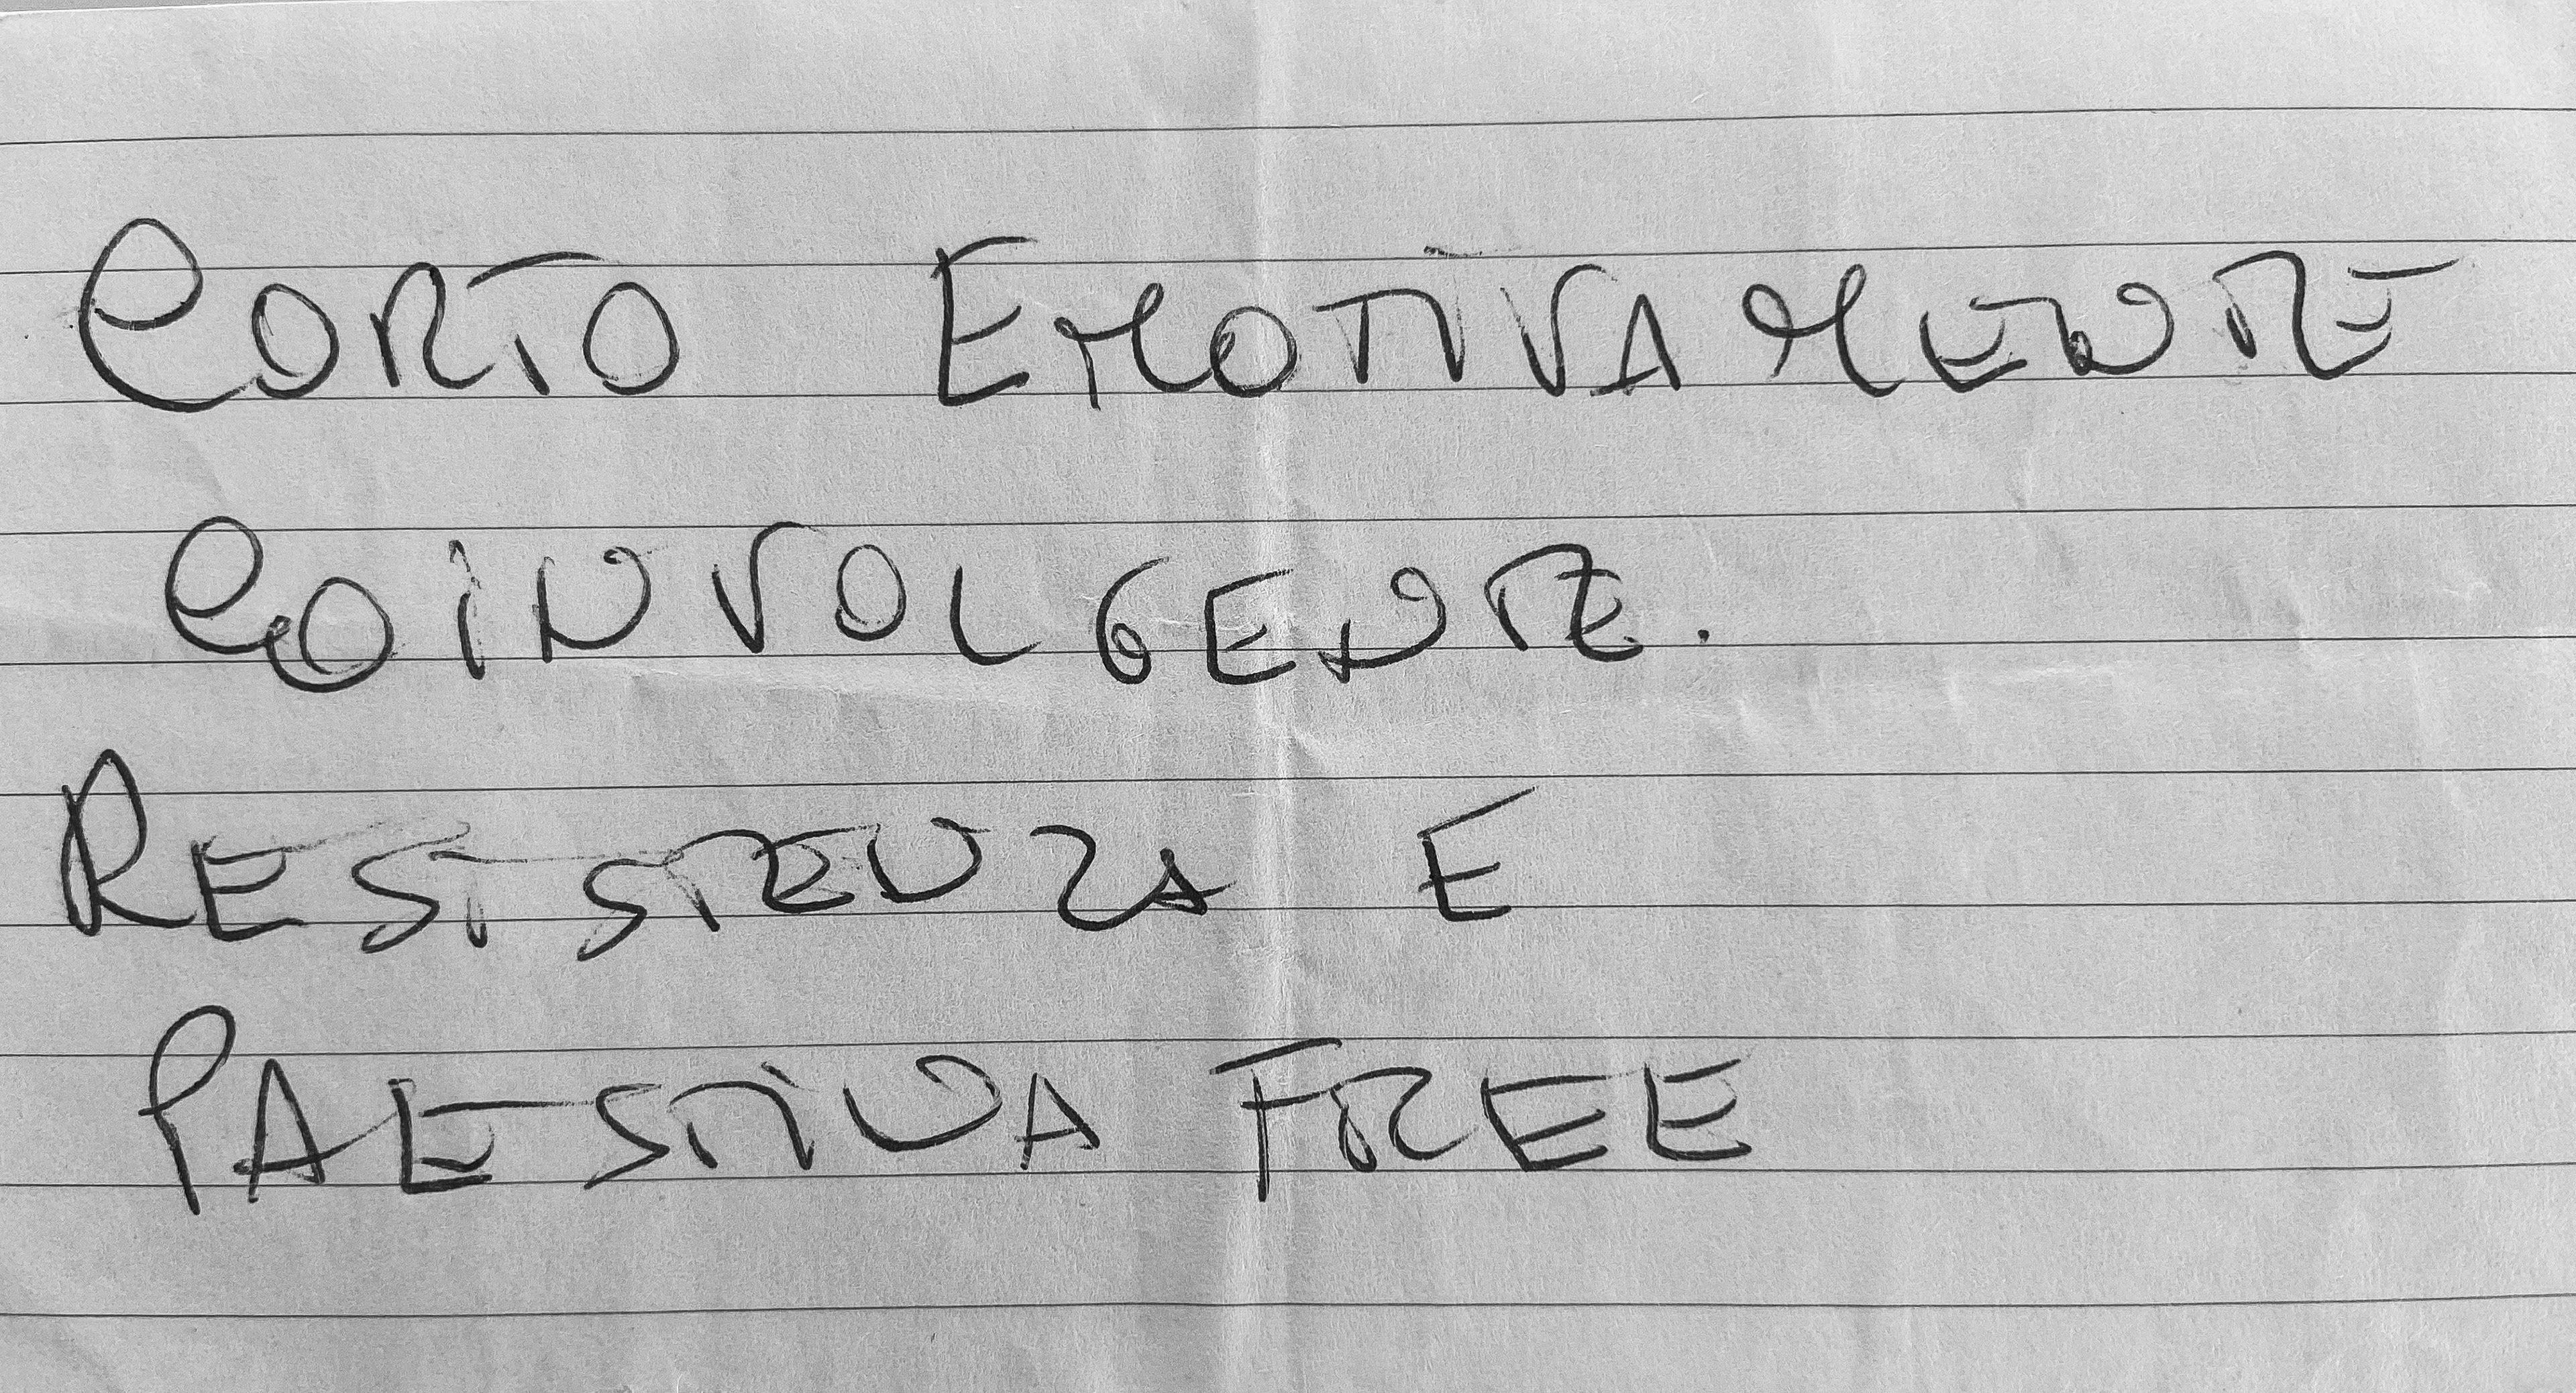 CORTO EMOTIVAMENTE
COINVOLGENTE.
RESISTENZA E
PAESTINA FREE